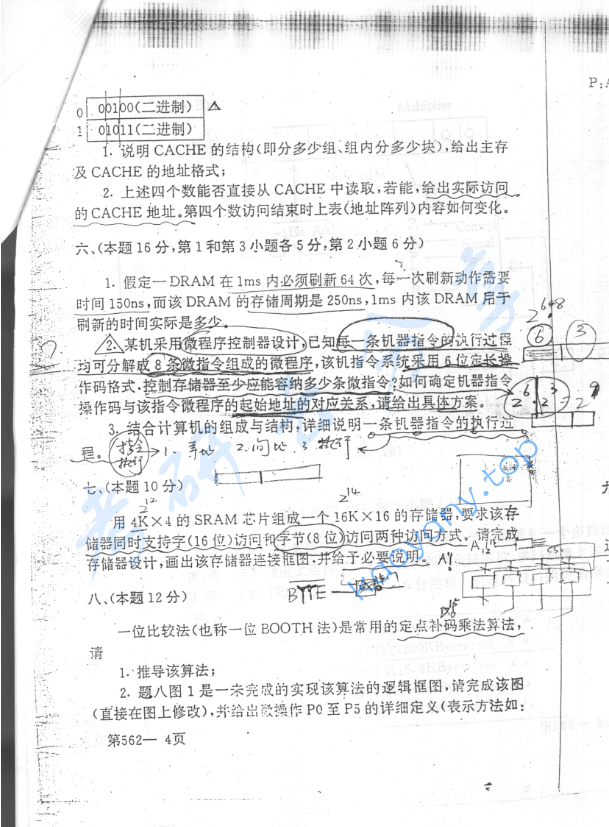 P:
0 00100(二进制) △
1 01011(二进制)
1. 说明 CACHE 的结构(即分多少组、组内分多少块),给出主存
及 CACHE 的地址格式;
2. 上述四个数能否直接从 CACHE 中读取,若能,给出实际访问
的 CACHE 地址。第四个数访问结束时上表(地址阵列)内容如何变化。
六、(本题 16 分,第 1 和第 3 小题各 5 分,第 2 小题 6 分)
1. 假定一 DRAM 在 1ms 内必须刷新 64 次,每一次刷新动作需要
时间 150ns,而该 DRAM 的存储周期是 250ns,1ms 内该 DRAM 用于
刷新的时间实际是多少。
2. 某机采用微程序控制器设计,已知每一条机器指令的执行过程
均可分解成 8 条微指令组成的微程序,该机指令系统采用 6 位定长操
作码格式.控制存储器至少应能容纳多少条微指令?如何确定机器指令
操作码与该指令微程序的起始地址的对应关系,请给出具体方案。
3. 结合计算机的组成与结构,详细说明一条机器指令的执行过
程。
七、(本题 10 分)
2^12 2^14
用 4K×4 的 SRAM 芯片组成一个 16K×16 的存储器,要求该存
储器同时支持字(16 位)访问和字节(8 位)访问两种访问方式。请完成
存储器设计,画出该存储器连接框图,并给予必要说明。
八、(本题 12 分)
BYTE
一位比较法(也称一位 BOOTH 法)是常用的定点补码乘法算法,
请
1. 推导该算法;
2. 题八图 1 是一未完成的实现该算法的逻辑框图,请完成该图
(直接在图上修改),并给出微操作 P0 至 P5 的详细定义(表示方法如:
第562— 4页